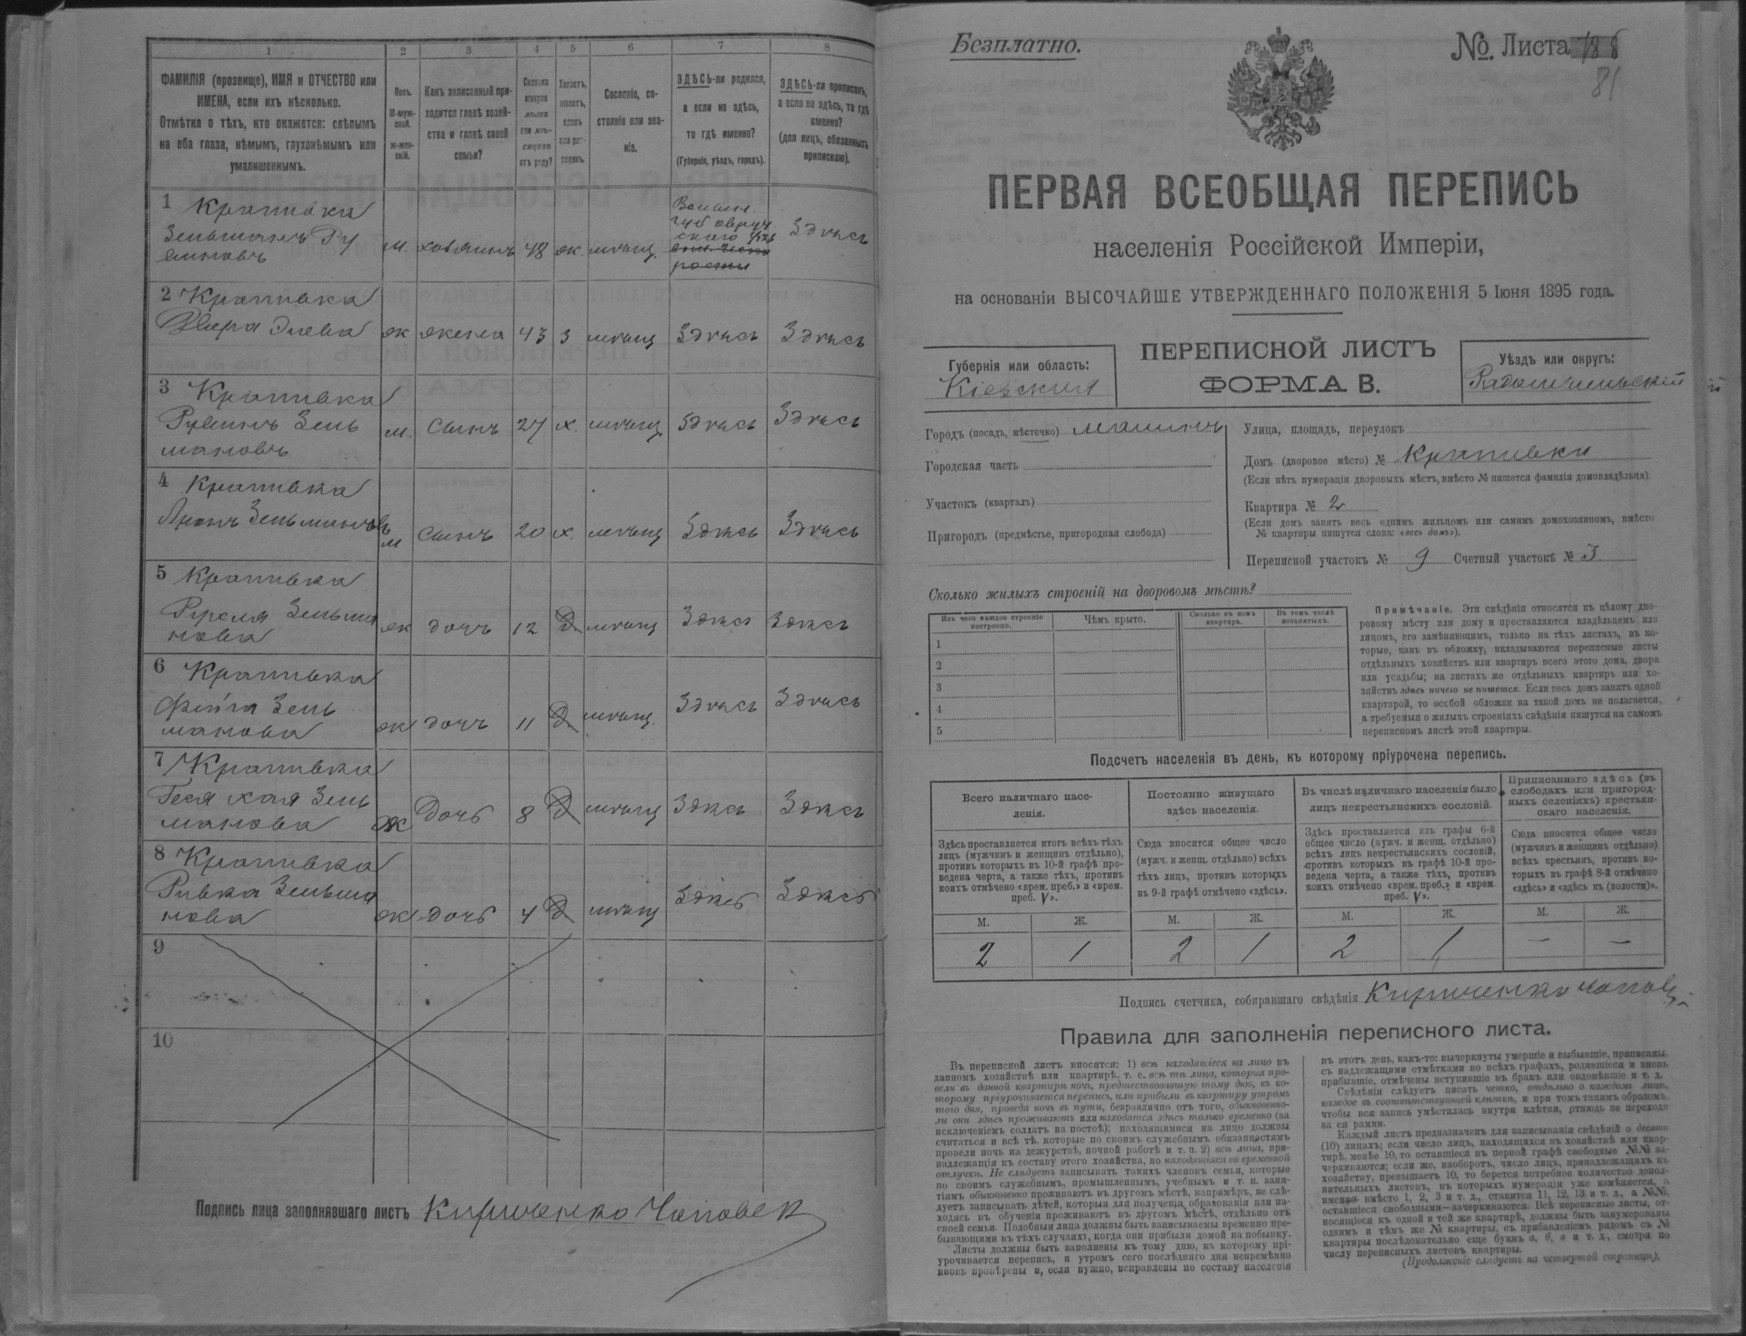 1 2 3 4 5 6 7 8
ФАМИЛІЯ (прозвище), ИМЯ и ОТЧЕСТВО или
ИМЕНА, если ихъ нѣсколько.
Отмѣтка о тѣхъ, кто окажется: слѣпымъ
на оба глаза, нѣмымъ, глухонѣмымъ или
умалишеннымъ.
Полъ.
М-муж-
ской.
Ж-жен-
скій.
Какъ записанный при-
ходится главѣ хозяй-
ства и главѣ своей
семьи?
Сколько
минуло
лѣтъ
или мѣ-
сяцевъ
отъ роду?
Холостъ,
женатъ,
вдовъ
или раз-
веденъ.
Сословіе, со-
стояніе или зва-
ніе.
ЗДѢСЬ-ли родился,
а если не здѣсь,
то гдѣ именно?
(Губернія, уѣздъ, городъ).
ЗДѢСЬ-ли приписанъ,
а если не здѣсь, то гдѣ
именно?
(для лицъ, обязанныхъ
припискою).
1 Крапивка
Зельманъ Ру
виновъ м. хозяинъ 48 ж. мѣщ. Здѣсь
Волын.
губ овруч
ского уѣз
2 Крапивка
Двира Элева ж жена 43 з мѣщ Здѣсь Здѣсь
3 Крапивка
Рувинъ Зель
мановъ м. сынъ 27 х. мѣщ. Здѣсь Здѣсь
4 Крапивка
Аронъ Зельмановъ м сынъ 20 х. мѣщ Здѣсь Здѣсь
5 Крапивка
Зельма
нова ж дочь 12 Д мѣщ Здѣсь Здѣсь
6 Крапивка
Фейга Зель
манова ж дочь 11 Д мѣщ. Здѣсь Здѣсь
7 Крапивка
Геся хая Зель
манова ж дочь 8 Д мѣщ Здѣсь Здѣсь
8 Крапивка
Ривка Зельма
нова ж дочь 4 Д мѣщ Здѣсь Здѣсь
9
10
Подпись лица заполнявшаго листъ Кириченко Чаповск
Безплатно.
№. Листа 81
ПЕРВАЯ ВСЕОБЩАЯ ПЕРЕПИСЬ
населенія Россійской Имперіи,
на основаніи ВЫСОЧАЙШЕ УТВЕРЖДЕННАГО ПОЛОЖЕНІЯ 5 Іюня 1895 года.
ПЕРЕПИСНОЙ ЛИСТЪ
ФОРМА В.
Губернія или область:
Кіевская
Уѣздъ или округъ:
Радомысльскій
Городъ (посадъ, мѣстечко) Малинъ
Городская часть
Участокъ (кварталъ)
Пригородъ (предмѣстье, пригородная слобода)
Улица, площадь, переулокъ
Домъ (дворовое мѣсто) № Крапивки
(Если нѣтъ нумераціи дворовыхъ мѣстъ, вмѣсто № пишется фамилія домовладѣльца).
Квартира № 2
(Если домъ занятъ весь однимъ жильцомъ или самимъ домохозяиномъ, вмѣсто
№ квартиры пишутся слова: «весь домъ»).
Переписной участокъ № 9 Счетный участокъ № 3
Сколько жилыхъ строеній на дворовомъ мѣстѣ?
Изъ чего каждое строеніе
построено.
Чѣмъ крыто.
Сколько въ немъ
квартиръ.
Въ томъ числѣ
незанятыхъ.
1
2
3
4
5
Примѣчаніе. Эти свѣдѣнія относятся къ цѣлому дво-
ровому мѣсту или дому и проставляются владѣльцемъ или
лицомъ, его замѣняющимъ, только на тѣхъ листахъ, въ ко-
торые, какъ въ обложку, вкладываются переписные листы
отдѣльныхъ хозяйствъ или квартиръ всего этого дома, двора
или усадьбы; на листахъ же отдѣльныхъ квартиръ или хо-
зяйствъ здѣсь ничего не пишется. Если весь домъ занятъ одной
квартирой, то особой обложки на такой домъ не полагается,
а требуемыя о жилыхъ строеніяхъ свѣдѣнія пишутся на самомъ
переписномъ листѣ этой квартиры.
Подсчетъ населенія въ день, къ которому пріурочена перепись.
Всего наличнаго насе-
ленія.
Здѣсь проставляется итогъ всѣхъ тѣхъ
лицъ (мужчинъ и женщинъ отдѣльно),
противъ которыхъ въ 10-й графѣ про-
ведена черта, а также тѣхъ, противъ
коихъ отмѣчено «врем. преб.» и «врем.
преб. V».
Постоянно живущаго
здѣсь населенія.
Сюда вносится общее число
(мужч. и женщ. отдѣльно) всѣхъ
тѣхъ лицъ, противъ которыхъ
въ 9-й графѣ отмѣчено «здѣсь».
Въ числѣ наличнаго населенія было
лицъ некрестьянскихъ сословій.
Здѣсь проставляется изъ графы 6-й
общее число (мужч. и женщ. отдѣльно)
всѣхъ лицъ некрестьянскихъ сословій,
противъ которыхъ въ графѣ 10-й про-
ведена черта, а также тѣхъ, противъ
коихъ отмѣчено «врем. преб.» и «врем.
преб. V».
Приписаннаго здѣсь (въ
слободахъ или пригород-
ныхъ селеніяхъ) крестьян-
скаго населенія.
Сюда вносится общее число
(мужчинъ и женщинъ отдѣльно)
всѣхъ крестьянъ, противъ ко-
торыхъ въ графѣ 8-й отмѣчено
«здѣсь» и «здѣсь къ (волости)».
М. Ж. М. Ж. М. Ж. М. Ж.
2 1 2 1 2 1 — —
Подпись счетчика, собиравшаго свѣдѣнія Кириченко
Правила для заполненія переписного листа.
Въ переписной листъ вносятся: 1) всѣ находящіеся на лицо въ
данномъ хозяйствѣ или квартирѣ, т. е. всѣ тѣ лица, которыя про-
вели въ данной квартирѣ ночь, предшествовавшую тому дню, къ ко-
торому пріурочивается перепись, или прибыли въ квартиру утромъ
того дня, проведя ночь въ пути, безразлично отъ того, обыкновенно-
ли они здѣсь проживаютъ или находятся здѣсь только временно (за
исключеніемъ солдатъ на постоѣ); находящимися на лицо должны
считаться и всѣ тѣ, которые по своимъ служебнымъ обязанностямъ
провели ночь на дежурствѣ, ночной работѣ и т. п. 2) всѣ лица, при-
надлежащія къ составу этого хозяйства, но находящіяся во временной
отлучкѣ. Не слѣдуетъ записывать такихъ членовъ семьи, которые
по своимъ служебнымъ, промышленнымъ, учебнымъ и т. п. заня-
тіямъ обыкновенно проживаютъ въ другомъ мѣстѣ, напримѣръ, не слѣ-
дуетъ записывать дѣтей, которыя для полученія образованія или на-
ходясь въ обученіи проживаютъ въ другомъ мѣстѣ, отдѣльно отъ
своей семьи. Подобныя лица должны быть записываемы временно пре-
бывающими въ тѣхъ случаяхъ, когда они прибыли домой на побывку.
Листы должны быть заполнены къ тому дню, къ которому прі-
урочивается перепись, и утромъ сего послѣдняго дня непремѣнно
вновь провѣрены и, если нужно, исправлены по составу населенія
въ этотъ день, какъ-то: вычеркнуты умершіе и выбывшіе, приписаны,
съ надлежащими отмѣтками во всѣхъ графахъ, родившіеся и вновь
прибывшіе, отмѣчены вступившіе въ бракъ или овдовѣвшіе и т. д.
Свѣдѣнія слѣдуетъ писать четко, отдѣльно о каждомъ лицѣ,
каждое въ соотвѣтствующей клѣткѣ, и при томъ такимъ образомъ,
чтобы вся запись умѣстилась внутри клѣтки, отнюдь не переходя
за ея рамки.
Каждый листъ предназначенъ для записыванія свѣдѣній о десяти
(10) лицахъ; если число лицъ, находящихся въ хозяйствѣ или квар-
тирѣ, менѣе 10, то оставшіеся въ первой графѣ свободные №№ за-
черкиваются; если же, наоборотъ, число лицъ, принадлежащихъ къ
хозяйству, превышаетъ 10, то берется потребное количество допол-
нительныхъ листовъ, въ которыхъ нумерація уже измѣняется, а
именно вмѣсто 1, 2, 3 и т. д., ставится 11, 12, 13 и т. д., а №№,
оставшіеся свободными—зачеркиваются. Всѣ переписные листы, от-
носящіеся къ одной и той же квартирѣ, должны быть занумерованы
однимъ и тѣмъ же № квартиры, съ прибавленіемъ рядомъ съ №
квартиры послѣдовательно еще буквъ а, б, в и т. д., смотря по
числу переписныхъ листовъ квартиры.
(Продолженіе слѣдуетъ на четвертой страницѣ).